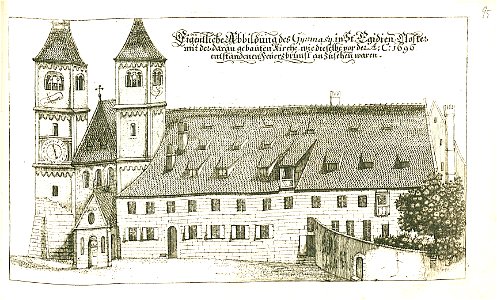 Eigentliche Abbildung des Gymnasij in St. Egidien Closter
mit der daran gebauten Kirche wie dieselbe vor der A: C: 1696
entstandenen Feuersbrunst anzusehen waren.